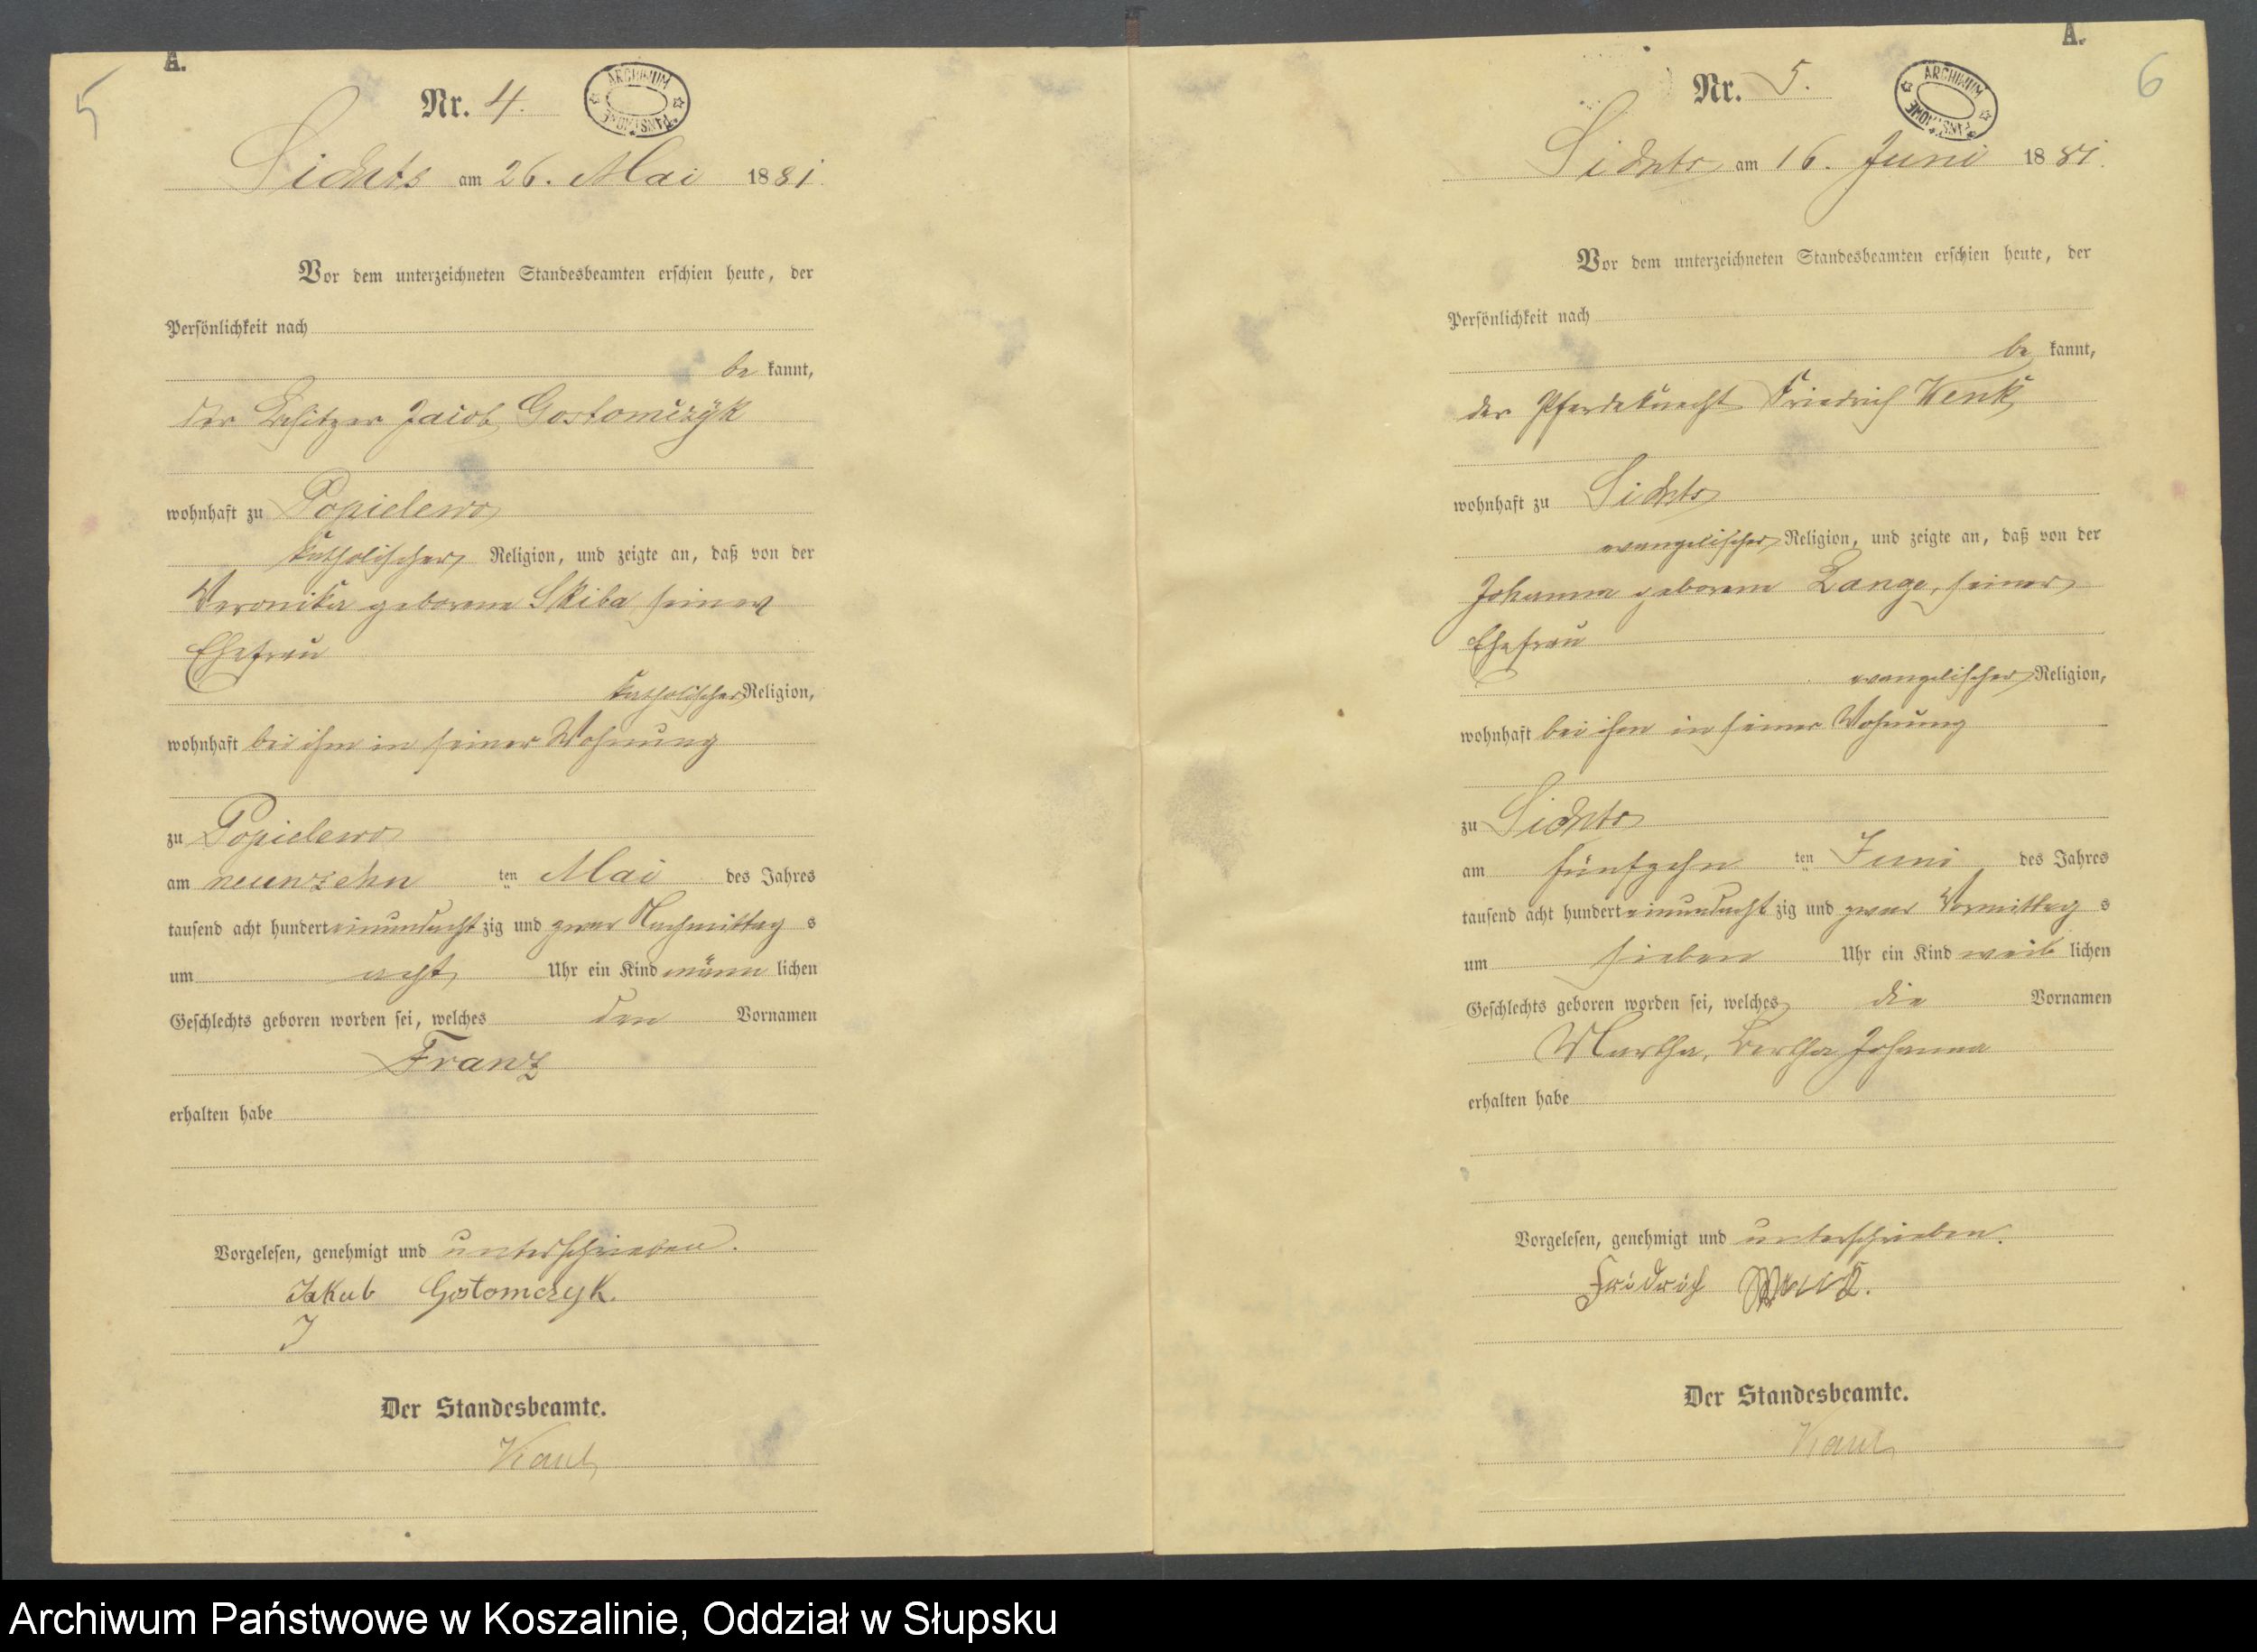 5
A.
Nr. 4.
ARCHIWUM PAŃSTWOWE
Sichts am 26. Mai 1881.
Vor dem unterzeichneten Standesbeamten erschien heute, der
Persönlichkeit nach
be kannt,
der Besitzer Jacob Gostomczyk
wohnhaft zu Popielewo
katholischer Religion, und zeigte an, daß von der
Veronika geborene Skiba seiner
Ehefrau
katholischer Religion,
wohnhaft bei ihm in seiner Wohnung
zu Popielewo
am neunzehn ten Mai des Jahres
tausend acht hundert einundacht zig und zwar Nachmittag s
um acht Uhr ein Kind männ lichen
Geschlechts geboren worden sei, welches den Vornamen
Franz
erhalten habe
Vorgelesen, genehmigt und unterschrieben.
Jakub Gostomczyk.
J
Der Standesbeamte.
6
A.
Nr. 5.
ARCHIWUM PAŃSTWOWE
Sichts am 16. Juni 1881.
Vor dem unterzeichneten Standesbeamten erschien heute, der
Persönlichkeit nach
be kannt,
der Pferdeknecht Friedrich Wenk
wohnhaft zu Sichts
evangelischer Religion, und zeigte an, daß von der
Johanna geborene Lange, seiner
Ehefrau
evangelischer Religion,
wohnhaft bei ihm in seiner Wohnung
zu Sichts
am fünfzehn ten Juni des Jahres
tausend acht hundert einundacht zig und zwar Vormittag s
um sieben Uhr ein Kind weib lichen
Geschlechts geboren worden sei, welches die Vornamen
Martha, Bertha Johanna
erhalten habe
Vorgelesen, genehmigt und unterschrieben.
Fridrich Wenk.
Der Standesbeamte.
Archiwum Państwowe w Koszalinie, Oddział w Słupsku